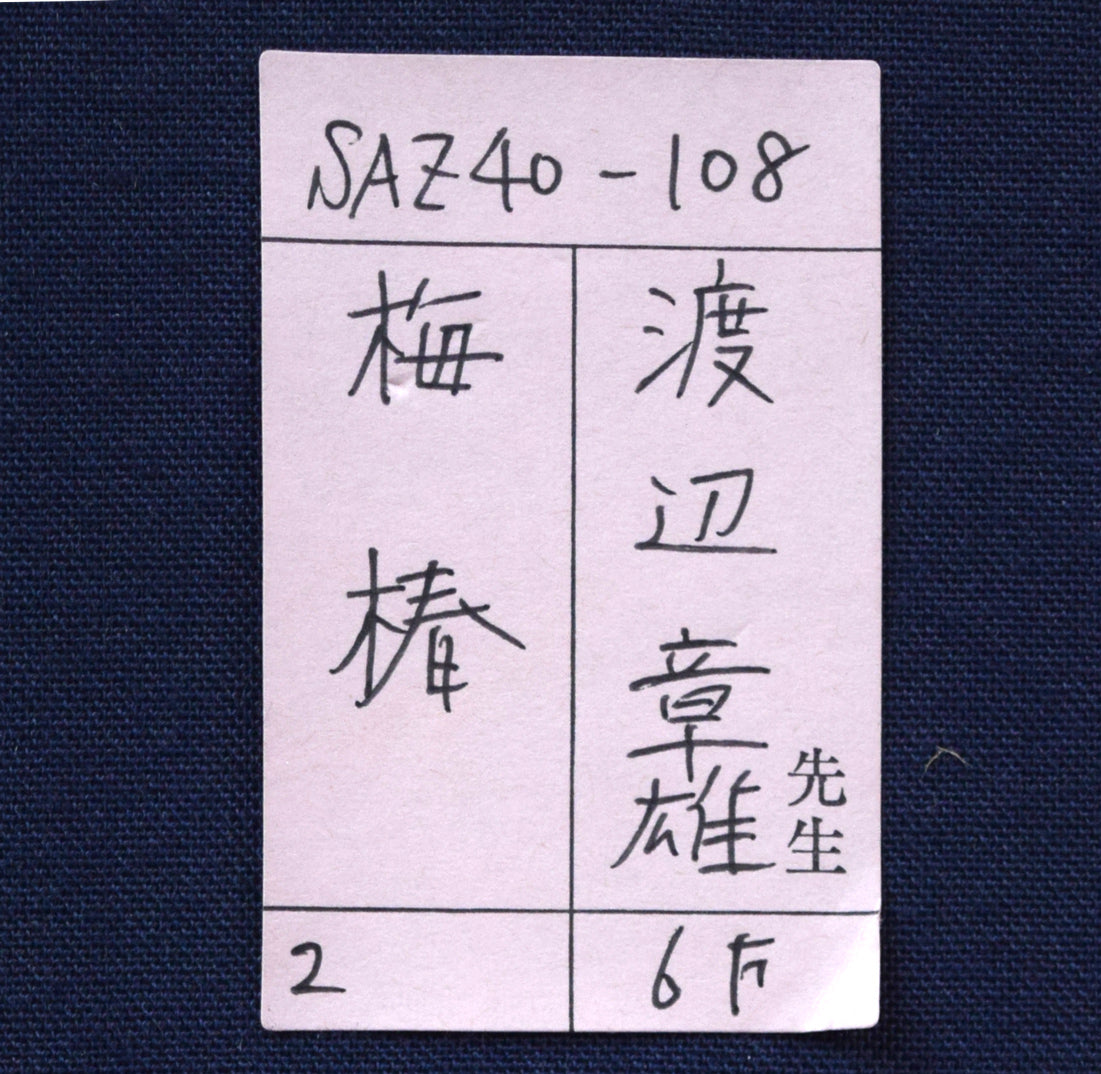 SAZ40-108
渡辺章雄
先生
梅椿
6
2